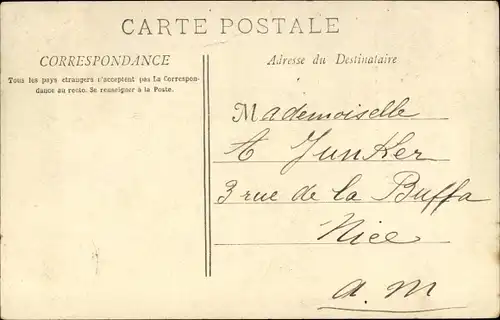 CARTE POSTALE
CORRESPONDANCE
Tous les pays étrangers n'acceptent pas La Correspon-
dance au recto. Se renseigner à la Poste.
Adresse du Destinataire
Mademoiselle
A Junker
3 rue de la Buffa
Nice
A. M